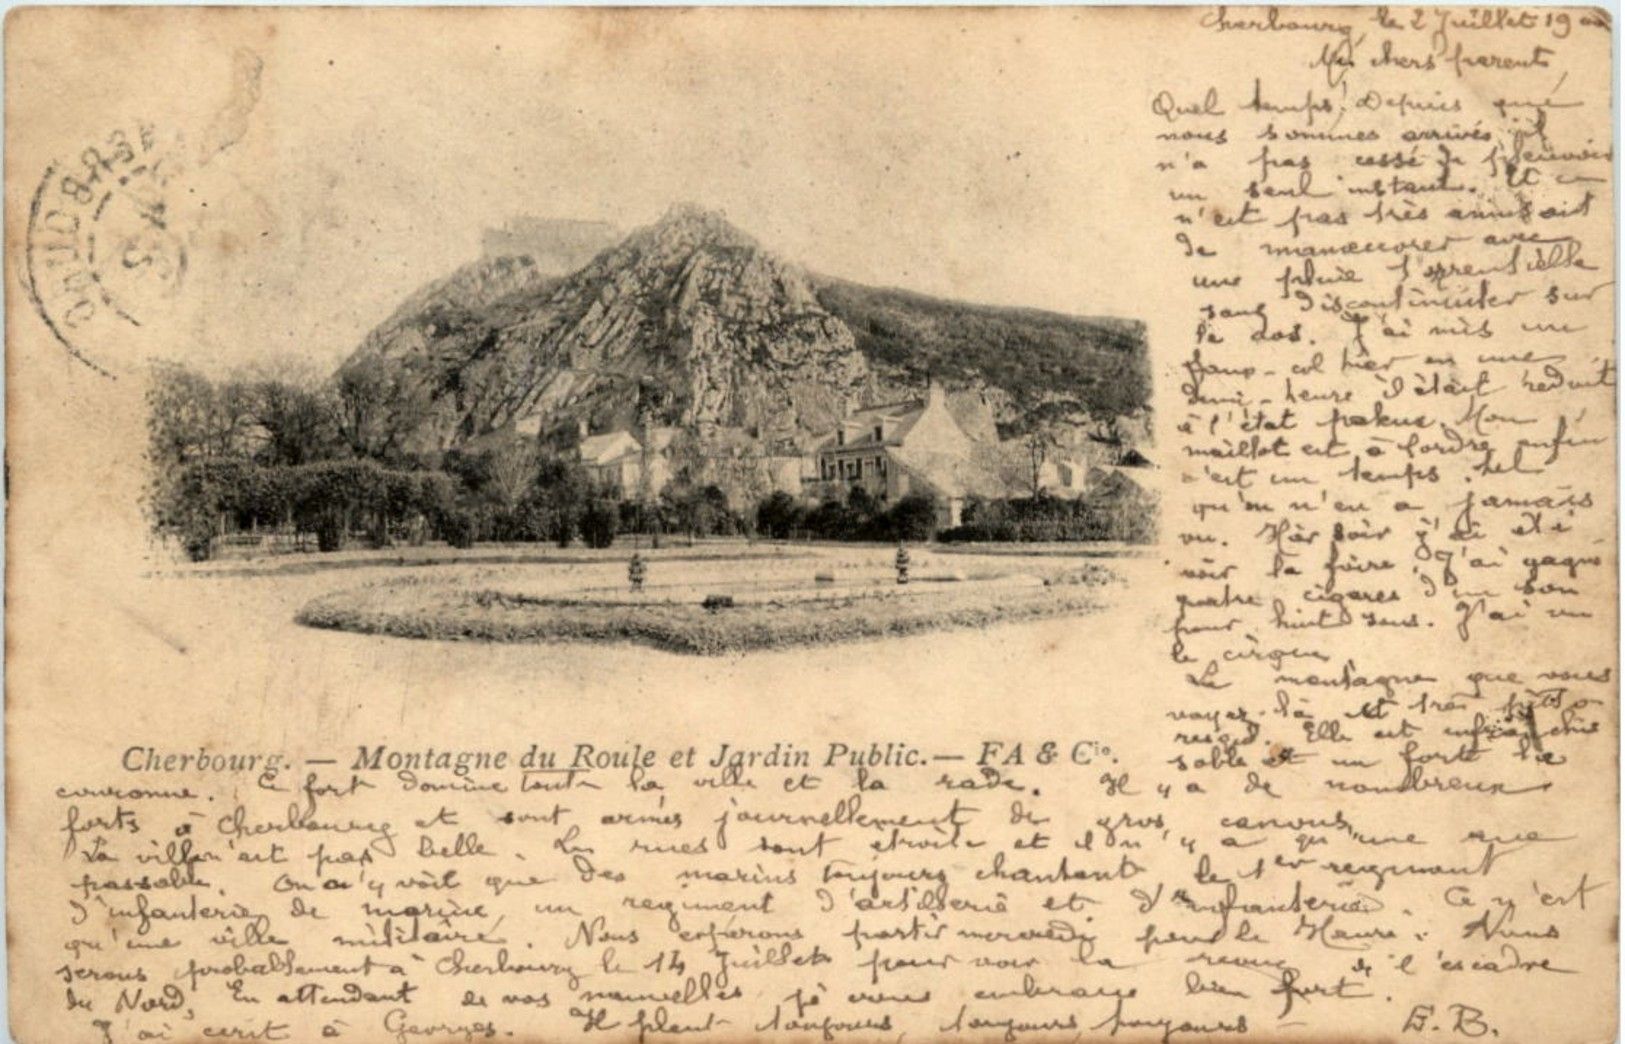 CHERBOURG
Cherbourg, le 2 Juillet 19
Mes chers parents,
Quel temps! Depuis que
nous sommes arrivés il
n'a pas cessé de pleuvoir
un seul instant. Et ce
n'est pas très amusant
de manœuvrer avec
une pluie torrentielle
sans discontinuer sur
le dos. J'ai mis un
faux-col hier en une
demi-heure il était réduit
à l'état
maillot est à tordre enfin
c'est un temps tel
qu'on n'en a jamais
vu. Hier soir j'ai été
voir la foire. J'ai gagné
quatre cigares d'un son
pour huit sous. J'ai vu
le cirque
La montagne que vous
voyez-là est très
Elle est
sable et un fort la
Cherbourg. — Montagne du Roule et Jardin Public. — FA & Cie.
couronne. Ce fort domine toute la ville et la rade. Il y a de nombreux
forts à Cherbourg et sont armés journellement de gros canons.
La ville n'est pas belle. Les rues sont étroites et il n'y a qu'une rue
passable. On n'y voit que des marins toujours chantant le 1er regiment
d'infanterie de marine, un regiment d'artillerie et d'infanterie. Ce n'est
qu'une ville militaire. Nous espérons partir mercredi pour le Havre. Nous
serons probablement à Cherbourg le 14 Juillet pour voir la revue de l'escadre
du Nord. En attendant de vos nouvelles je vous embrasse bien fort.
J'ai écrit à Georges. Il pleut toujours, toujours, toujours — E. B.